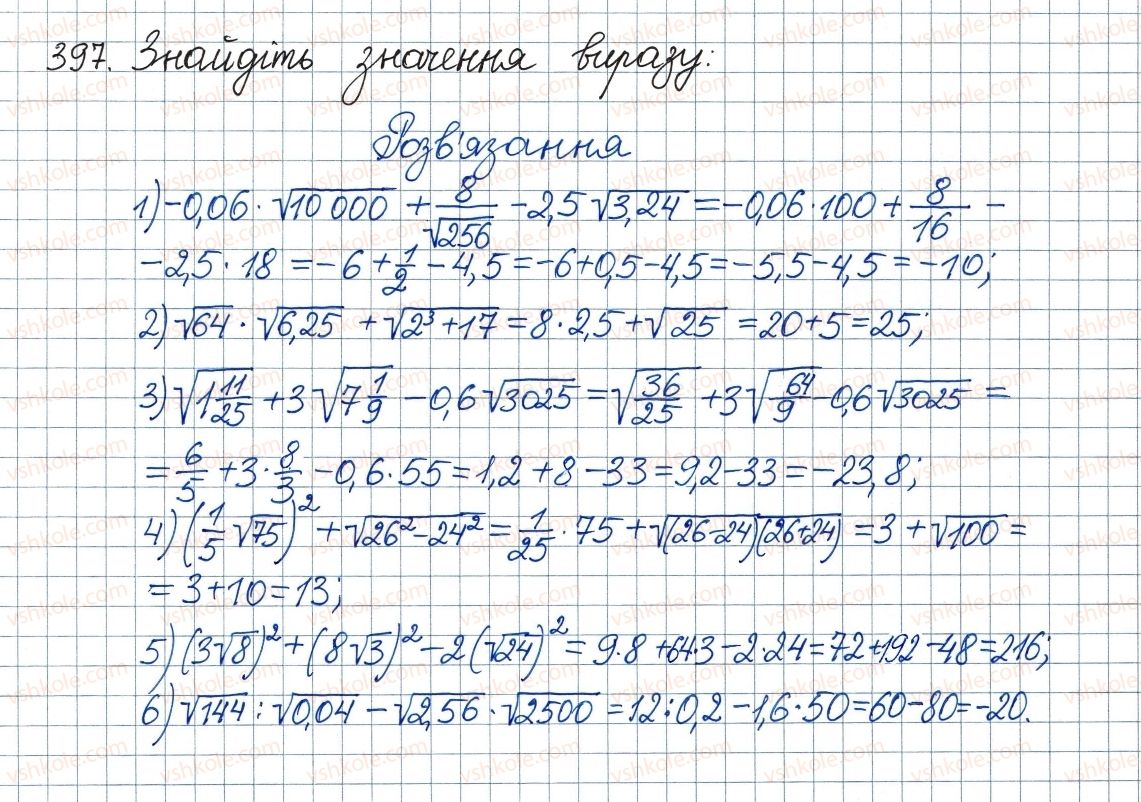 397. Знайдіть значення виразу:
Розв'язання
1) -0,06 · √10 000 + 8/√256 - 2,5 √3,24 = -0,06 · 100 + 8/16 -
- 2,5 · 18 = -6 + 1/2 - 4,5 = -6 + 0,5 - 4,5 = -5,5 - 4,5 = -10;
2) √64 · √6,25 + √(2³ + 17) = 8 · 2,5 + √25 = 20 + 5 = 25;
3) √(1 11/25) + 3 √(7 1/9) - 0,6 √3025 = √(36/25) + 3 √(64/9) - 0,6 √3025 =
= 6/5 + 3 · 8/3 - 0,6 · 55 = 1,2 + 8 - 33 = 9,2 - 33 = -23,8;
4) (1/5 √75)² + √(26² - 24²) = 1/25 · 75 + √((26-24)(26+24)) = 3 + √100 =
= 3 + 10 = 13;
5) (3√8)² + (8√3)² - 2(√24)² = 9 · 8 + 64 · 3 - 2 · 24 = 72 + 192 - 48 = 216;
6) √144 : √0,04 - √2,56 · √2500 = 12 : 0,2 - 1,6 · 50 = 60 - 80 = -20.
vshkole.com